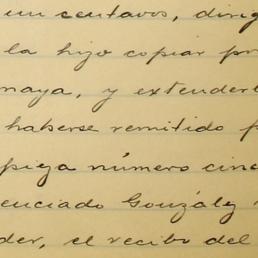 un centavos, dirig
la hizo copiar pr
maya, y extender
haberse remitido p
piza número cinc
enciado Gonzálz
der, el recibo del